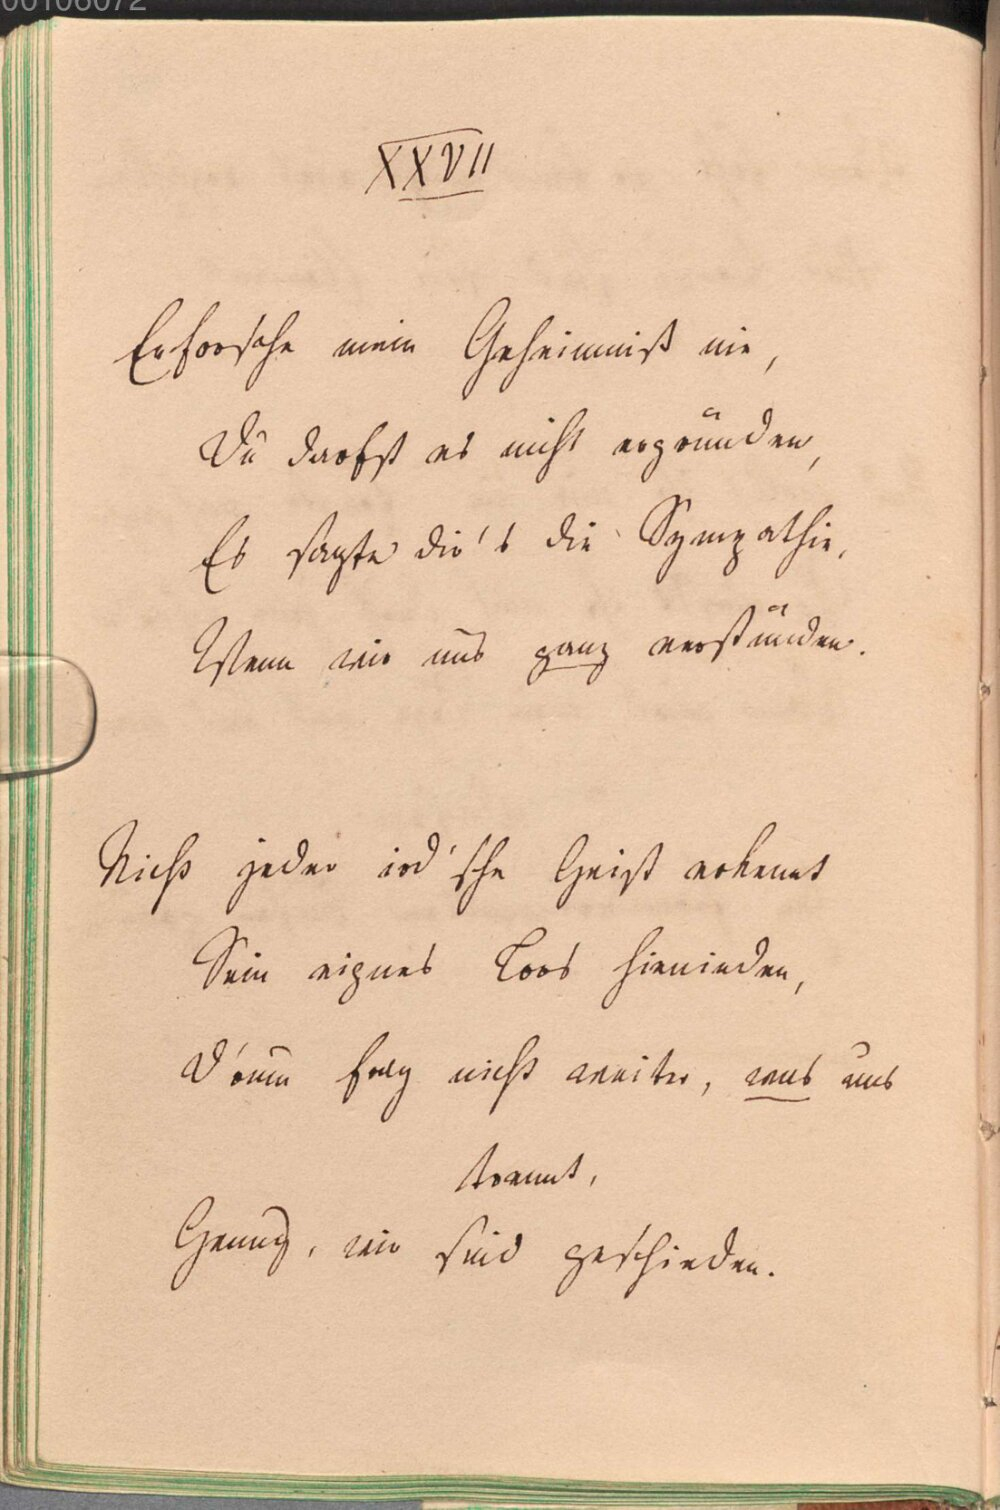 00106072
XXVII
Erforsche mein Geheimniß nie,
Du darfst es nicht ergründen,
Es sagte dir's die Sympathie,
Wenn wir uns ganz verständen.
Nicht jeder ird'sche Geist erkennt
Sein eignes Loos hienieden,
D'rum frag nicht weiter, was uns
trennt,
Genug, wir sind geschieden.